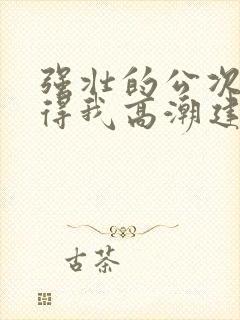 强壮的公次
得我高潮连
古茶